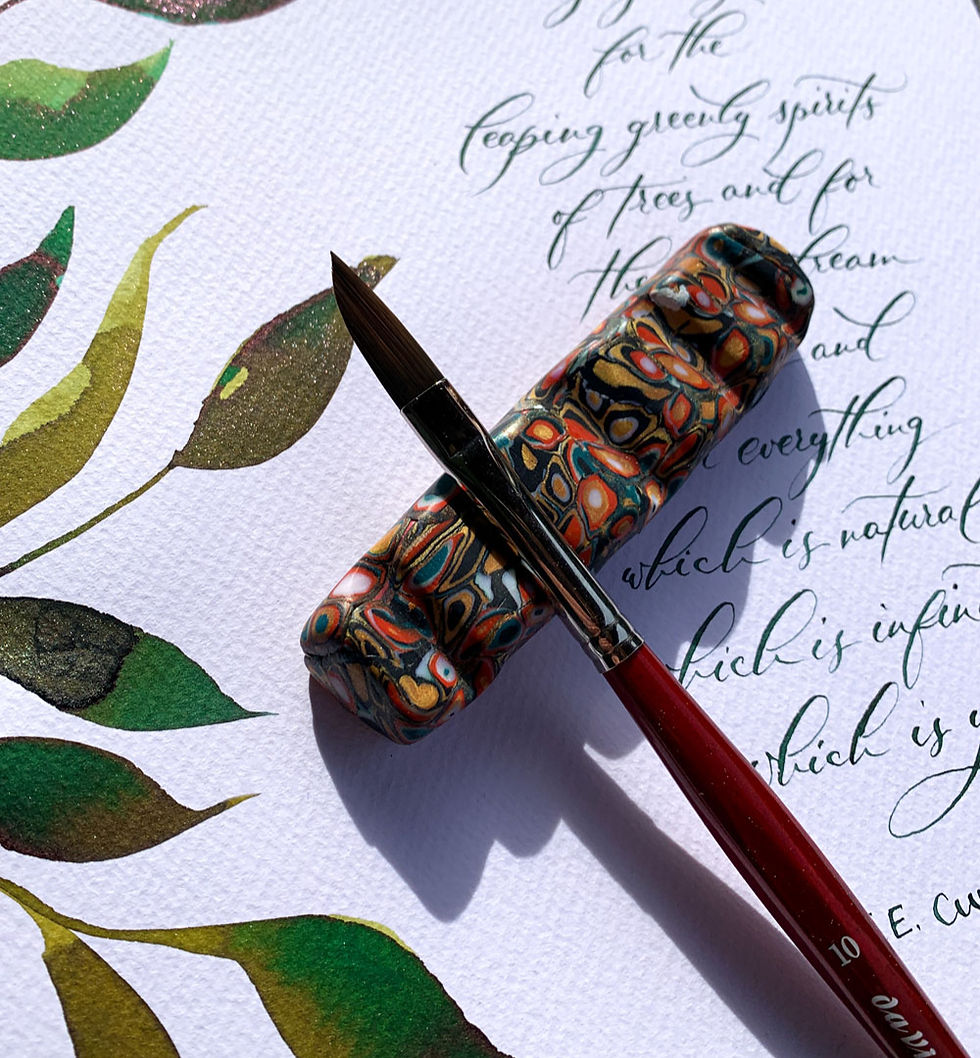 for the
leaping greenly spirits
of trees and for
the ream
and
everything
which is natural
hich is infin
which is y
E. Cu
10
davi